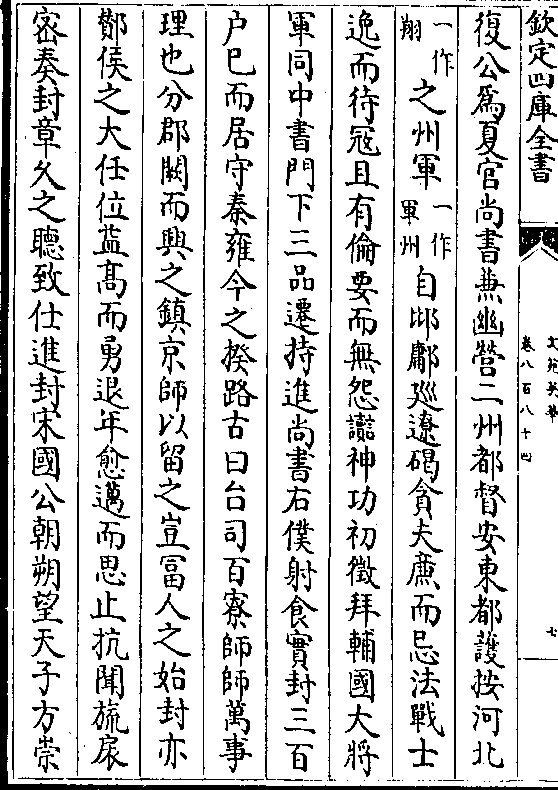 欽定四庫全書
文苑英華
卷八百八十四
七
復公為夏官尚書兼幽營二州都督安東都護按河北
一作翔之州軍一作軍州自邶鄘廵遼碣貪夫廉而忌法戰士
逸而待冦且有倫要而無怨讟神功初徵拜輔國大將
軍同中書門下三品遷持進尚書右僕射食實封三百
户已而居守秦雍今之揆路古曰台司百寮師師萬事
理也分郡闕而興之鎮京師以留之豈冨人之始封亦
酇侯之大任位葢高而勇退年愈邁而思止抗聞旒扆
宻奏封章久之聽致仕進封宋國公朝朔望天子方崇